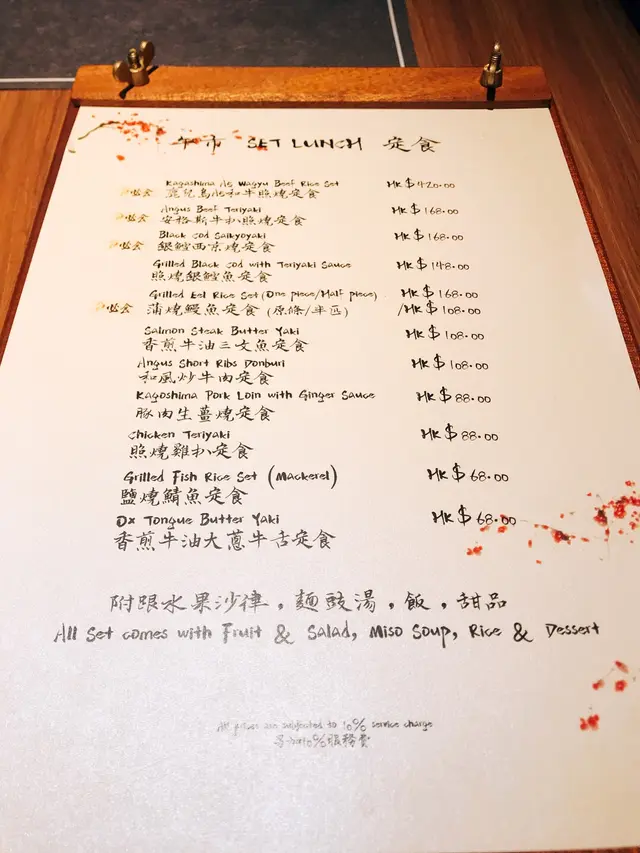 午市 SET LUNCH 定食
Kagoshima A5 Wagyu Beef Rice Set HK$420.00
必食 鹿兒島A5和牛照燒定食
Angus Beef Teriyaki HK$168.00
必食 安格斯牛扒照燒定食
Black Cod Saikyoyaki HK$168.00
必食 銀鱈西京燒定食
Grilled Black Cod with Teriyaki Sauce HK$148.00
照燒銀鱈魚定食
Grilled Eel Rice Set (One piece/Half piece) HK$168.00
必食 蒲燒鰻魚定食 (原條/半匹) /HK$108.00
Salmon Steak Butter Yaki HK$108.00
香煎牛油三文魚定食
Angus Short Ribs Donburi HK$108.00
和風炒牛肉定食
Kagoshima Pork Loin with Ginger Sauce HK$88.00
豚肉生薑燒定食
Chicken Teriyaki HK$88.00
照燒雞扒定食
Grilled Fish Rice Set (Mackerel) HK$68.00
鹽燒鯖魚定食
Ox Tongue Butter Yaki HK$68.00
香煎牛油大蔥牛舌定食
附跟水果沙律，麵豉湯，飯，甜品
All Set comes with Fruit & Salad, Miso Soup, Rice & Dessert
All prices are subjected to 10% service charge
另加10%服務費